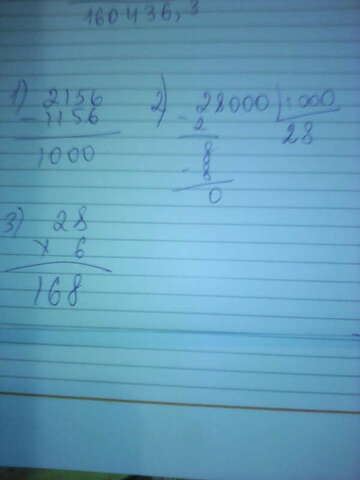 160436,3
1) 2156
- 1156
1000
2) - 28000 | 1000
2
28
8
- 8
0
3) 28
x 6
168